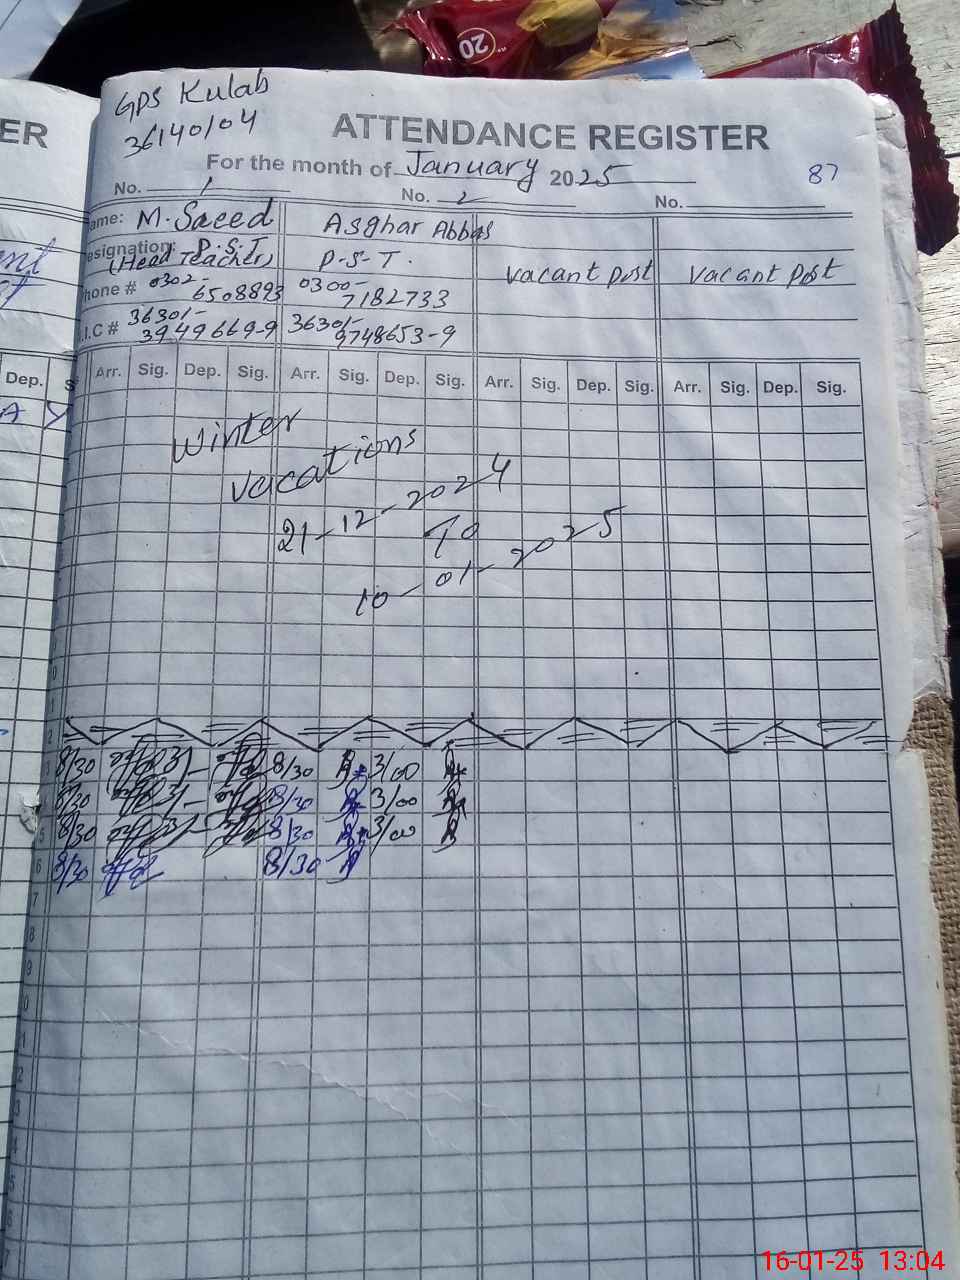 GPS Kulab
36140104
ER
ATTENDANCE REGISTER
For the month of January 2025
87
No. 1
No. 2
No.
ame: M. Saeed
Asghar Abbas
esignation: P.S.T
(Head Teacher)
P-S-T.
vacant post
vacant post
hone # 0302-
6508893
0300-
7182733
.I.C # 36301-
3949669-9
36301-
9748653-9
Dep. S
Arr. Sig. Dep. Sig. Arr. Sig. Dep. Sig. Arr. Sig. Dep. Sig. Arr. Sig. Dep. Sig.
Winter
vacations
21-12-2024
To
10-01-2025
2
3 8/30 8/30 3/00
8/30 8/30 3/00
5 8/30 8/30 3/00
6 8/30 8/30
7
8
9
0
1
2
3
4
5
20
16-01-25 13:04